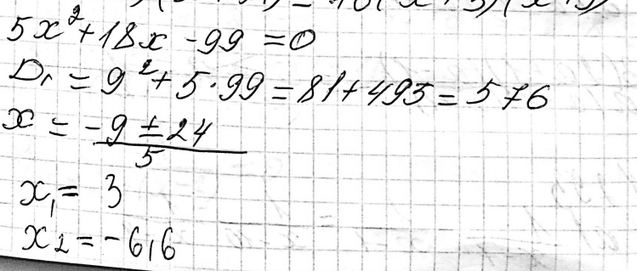 5x²+18x-99=0
D₁=9²+5·99=81+495=576
x=(-9±24)/5
x₁=3
x₂=-6,6